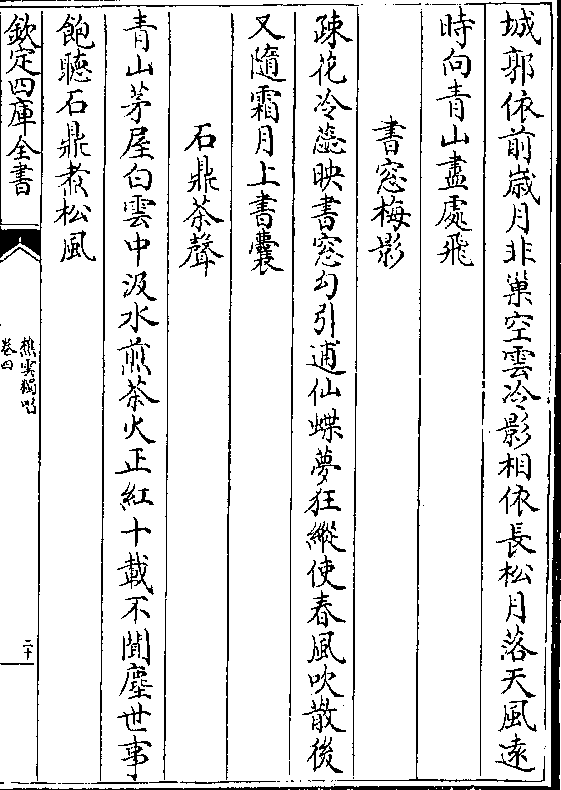 城郭依前歲月非巢空雲冷影相依長松月落天風逺
時向青山盡處飛
書窓梅影
疎花冷蘂映書窓勾引逋仙蝶夢狂縱使春風吹散後
又隨霜月上書囊
石鼎茶聲
青山茅屋白雲中汲水煎茶火正紅十載不聞塵世事
飽聽石鼎煮松風
欽定四庫全書
樵雲獨唱
卷四
二十